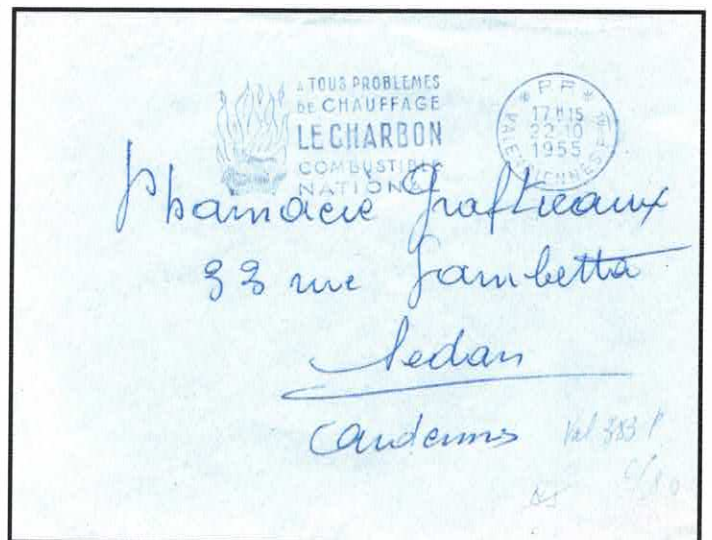 A TOUS PROBLEMES
DE CHAUFFAGE
LE CHARBON
COMBUSTIBLE
NATIONAL
* P.P. *
17 H 15
22-10
1955
VALENCIENNES
Pharmacie Grafteaux
33 rue Gambetta
Sedan
Ardennes
Val 383 P